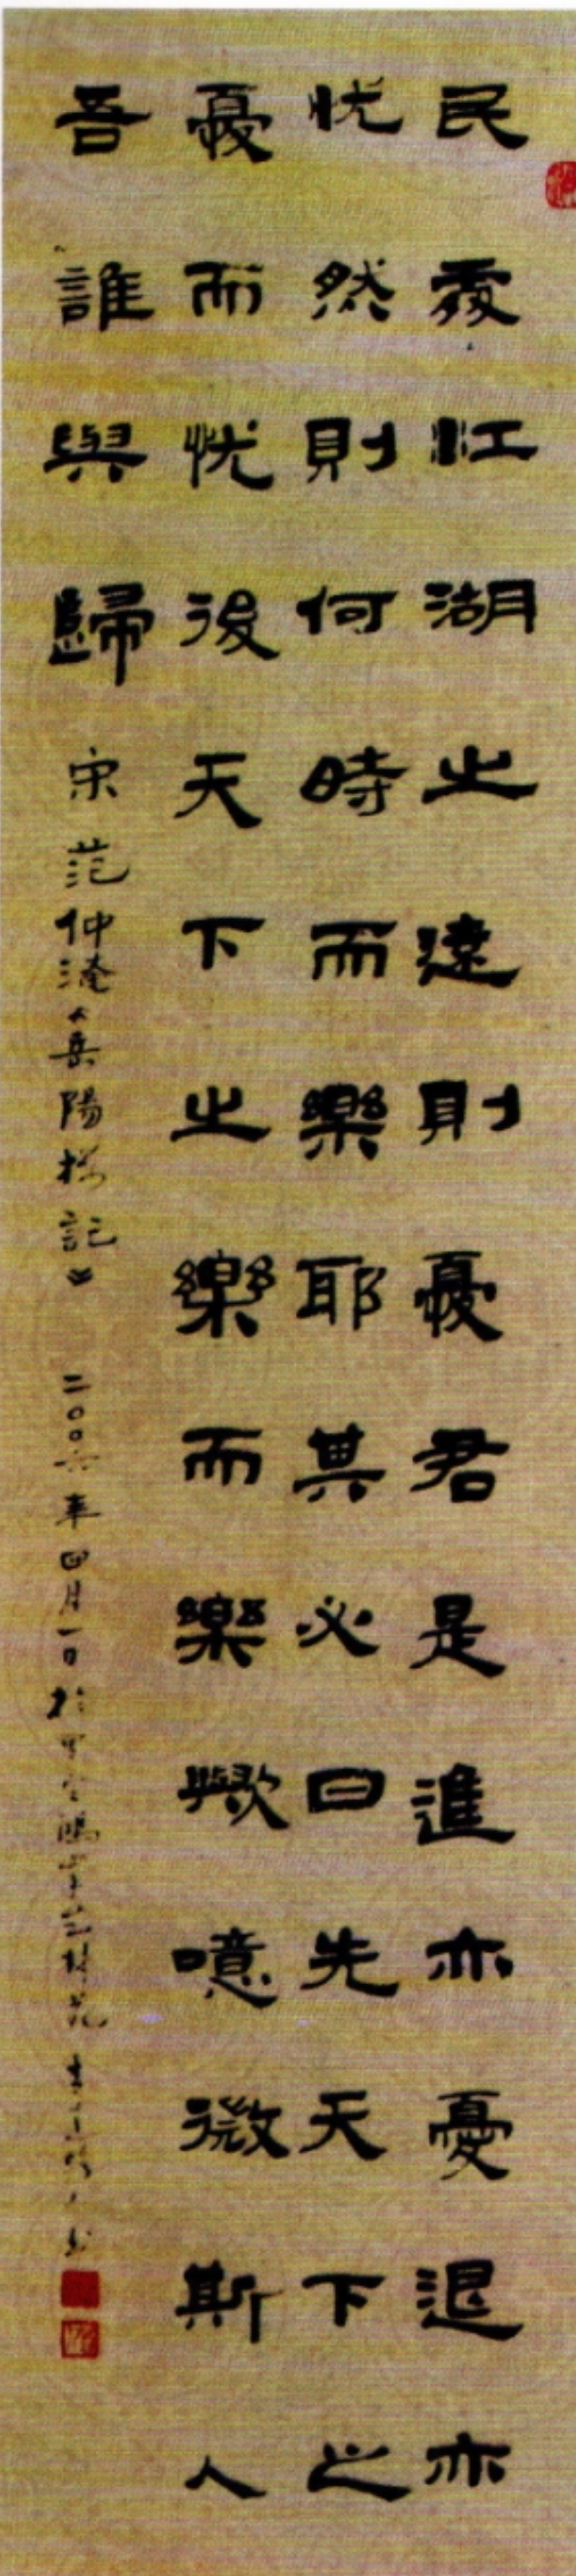 民處江湖之遠則憂君是進亦憂退亦
忧然則何時而樂耶其必曰先天下之
憂而忧後天下之樂而樂歟噫微斯人
吾誰與歸
宋范仲淹《岳陽楼記》 二〇〇六年四月一日於